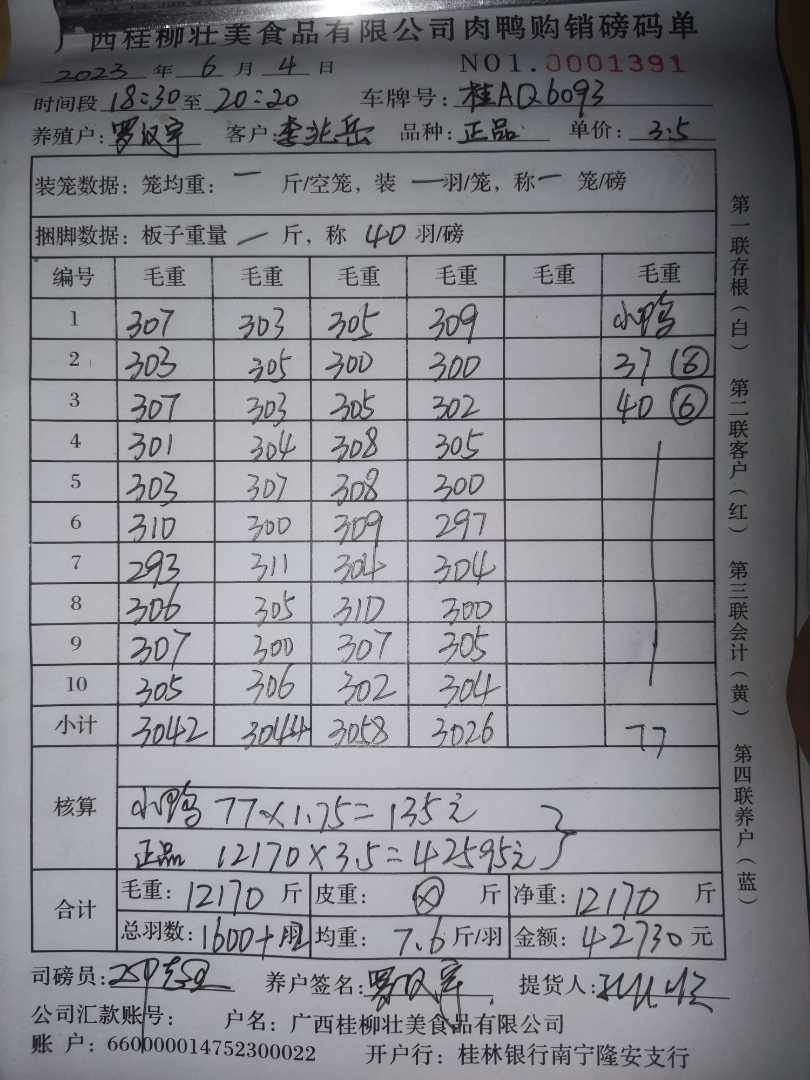 广西桂柳壮美食品有限公司肉鸭购销磅码单
2023 年 6 月 4 日 NO1.0001391
时间段 18:30 至 20:20 车牌号: 桂AQ6093
养殖户: 罗汉宇 客户: 李兆岳 品种: 正品 单价: 3.5
装笼数据: 笼均重: 一 斤/空笼, 装 一羽/笼, 称一 笼/磅
捆脚数据: 板子重量 一 斤, 称 40 羽/磅
编号 毛重 毛重 毛重 毛重 毛重 毛重
1 307 303 305 309 小鸭
2 303 305 300 300 37 (6)
3 307 303 305 302 40 (6)
4 301 304 308 305
5 303 307 308 300
6 310 300 309 297
7 293 311 304 304
8 306 305 310 300
9 307 300 307 305
10 305 306 302 304
小计 3042 3044 3058 3026 77
核算
小鸭 77×1.75=135元
正品 12170×3.5=42595元
合计
毛重: 12170 斤 皮重: ⊗ 斤 净重: 12170 斤
总羽数: 1600+ 羽 均重: 7.6 斤/羽 金额: 42730 元
司磅员: 养户签名: 罗汉宇 提货人:
公司汇款账号: 户名: 广西桂柳壮美食品有限公司
账 户: 660000014752300022 开户行: 桂林银行南宁隆安支行
第一联存根(白) 第二联客户(红) 第三联会计(黄) 第四联养户(蓝)